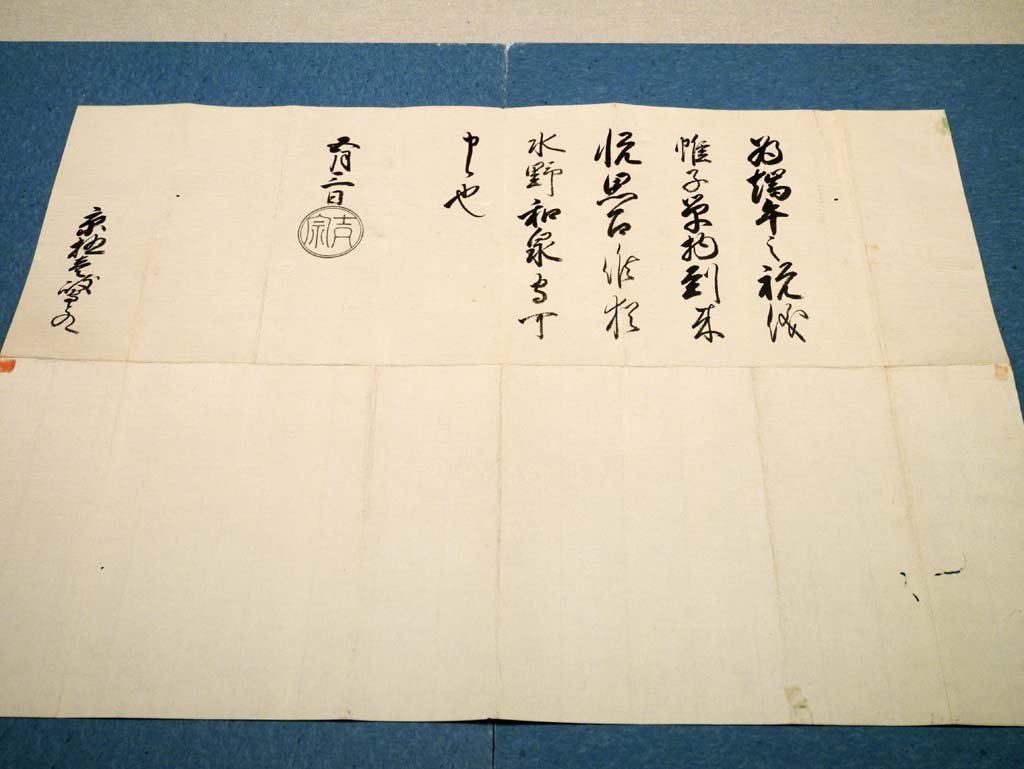 為端午之祝儀
帷子單物到来
悦思召候猶
水野和泉守可
申也
五月三日
吉宗
京極壱岐守とのへ